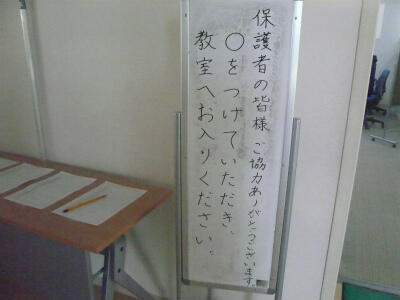 保護者の皆様 ご協力ありがとうございます。
○をつけていただき、
教室へお入りください。